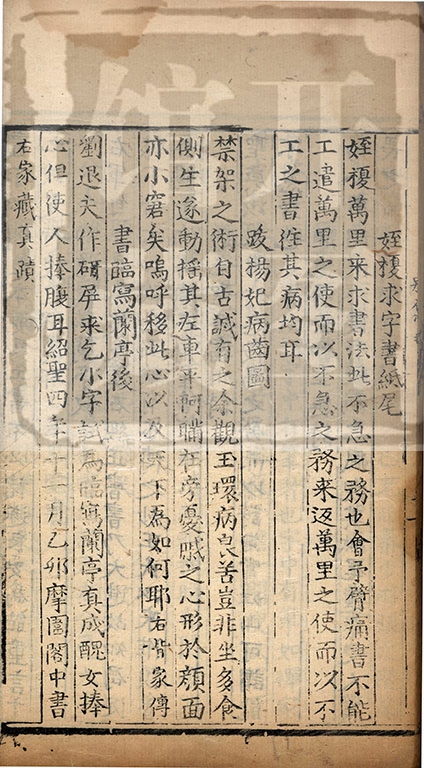 姪㮴求字書紙尾
姪㮴萬里來求書法此不急之務也會予臂痛書不能
工遣萬里之使而以不急之務来返萬里之使而以不
工之書徃其病均耳
跋楊妃病齒圖
禁架之術自古誠有之余觀玉環病良苦豈非坐多食
側生遂動揺其左車平阿瞞在旁憂戚之心形於顔面
亦小窘矣嗚呼移此心以及天下為如何耶右皆家傳
書臨寫蘭亭後
劉退夫作硏屏求乞小字試為臨寫蘭亭真成醜女捧
心但使人捧腹耳紹聖四年十二月乙夘摩圍閣中書
右家藏真蹟